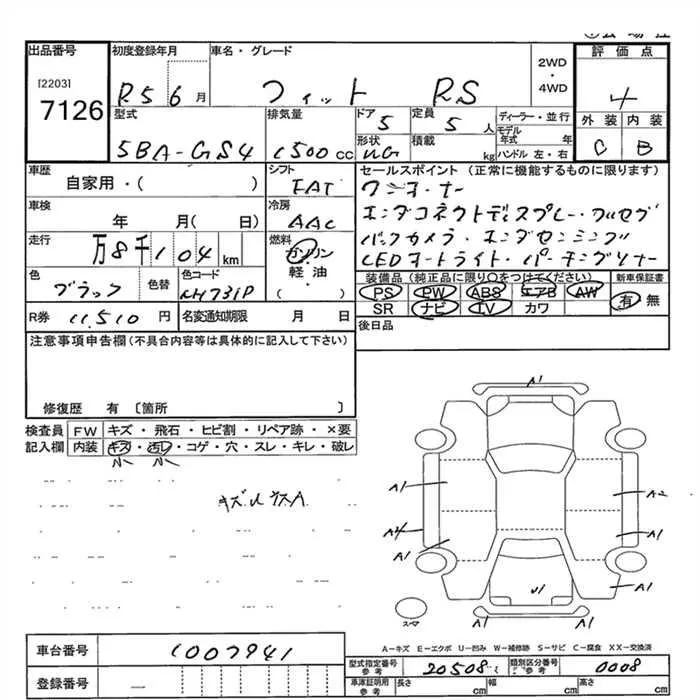 出品番号
[2203]
7126
初度登録年月
R5 6月
車名・グレード
フィット RS
2WD
・
4WD
評価点
4
外装 内装
C B
型式
5BA-GS4
排気量
1500 cc
ドア
5
定員
5 人
形状
積載
kg
ディーラー・並行
モデル年式 年
ハンドル 左・右
車歴
自家用・( )
シフト
FAT
車検
年 月( 日)
冷房
AAC
走行
万8千104 km
燃料
ガソリン
軽油
・
( )
色
ブラック
色替
色コード
NH731P
R券 11,510 円
名変通知期限 月 日
セールスポイント(正常に機能するものに限ります)
ワンオーナー
ホンダコネクトディスプレー・フルセグ
バックカメラ・ホンダセンシング
LEDオートライト・パーキングソナー
装備品(純正品に限り○をつけてください)
PS PW ABS エアB AW
SR ナビ TV カワ
新車保証書
有・無
後日品
注意事項申告欄(不具合内容等は具体的に記入して下さい)
修復歴 有〔箇所 〕
検査員
記入欄
FW キズ・飛石・ヒビ割・リペア跡・×要
内装 キズ・汚レ・コゲ・穴・スレ・キレ・破レ
小 小
A1
A1
A2
A2
A1
A1
A1
A1
U1
A1
A1
スマ
A-キズ E-エクボ U-凹み W-補修跡 S-サビ C-腐食 XX-交換済
車台番号 1007941
登録番号 —
型式指定番号
参考
20508
類別区分番号
参考
0008
車庫証明用
参考
長さ cm
幅 cm
高さ cm